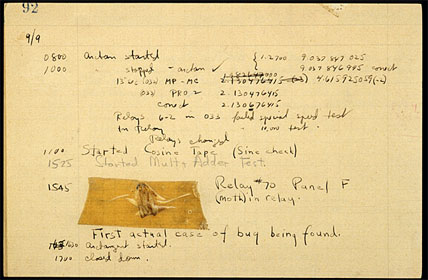 92
9/9
0800 Antan started { 1.2700 9.037 847 025
1000 stopped - antan ✓ 9.037 846 995 correct
13"uc (032) MP - MC 2.130476415 (-3) 4.615925059(-2)
(033) PRO 2 2.130476415
correct 2.130676415
Relays 6-2 in 033 failed special speed test
in relay 10,000 test.
Relays changed
1100 Started Cosine Tape (Sine check)
1525 Started Mult+Adder Test.
1545 Relay #70 Panel F
(Moth) in relay.
First actual case of bug being found.
1630 antangent started.
1700 closed down.